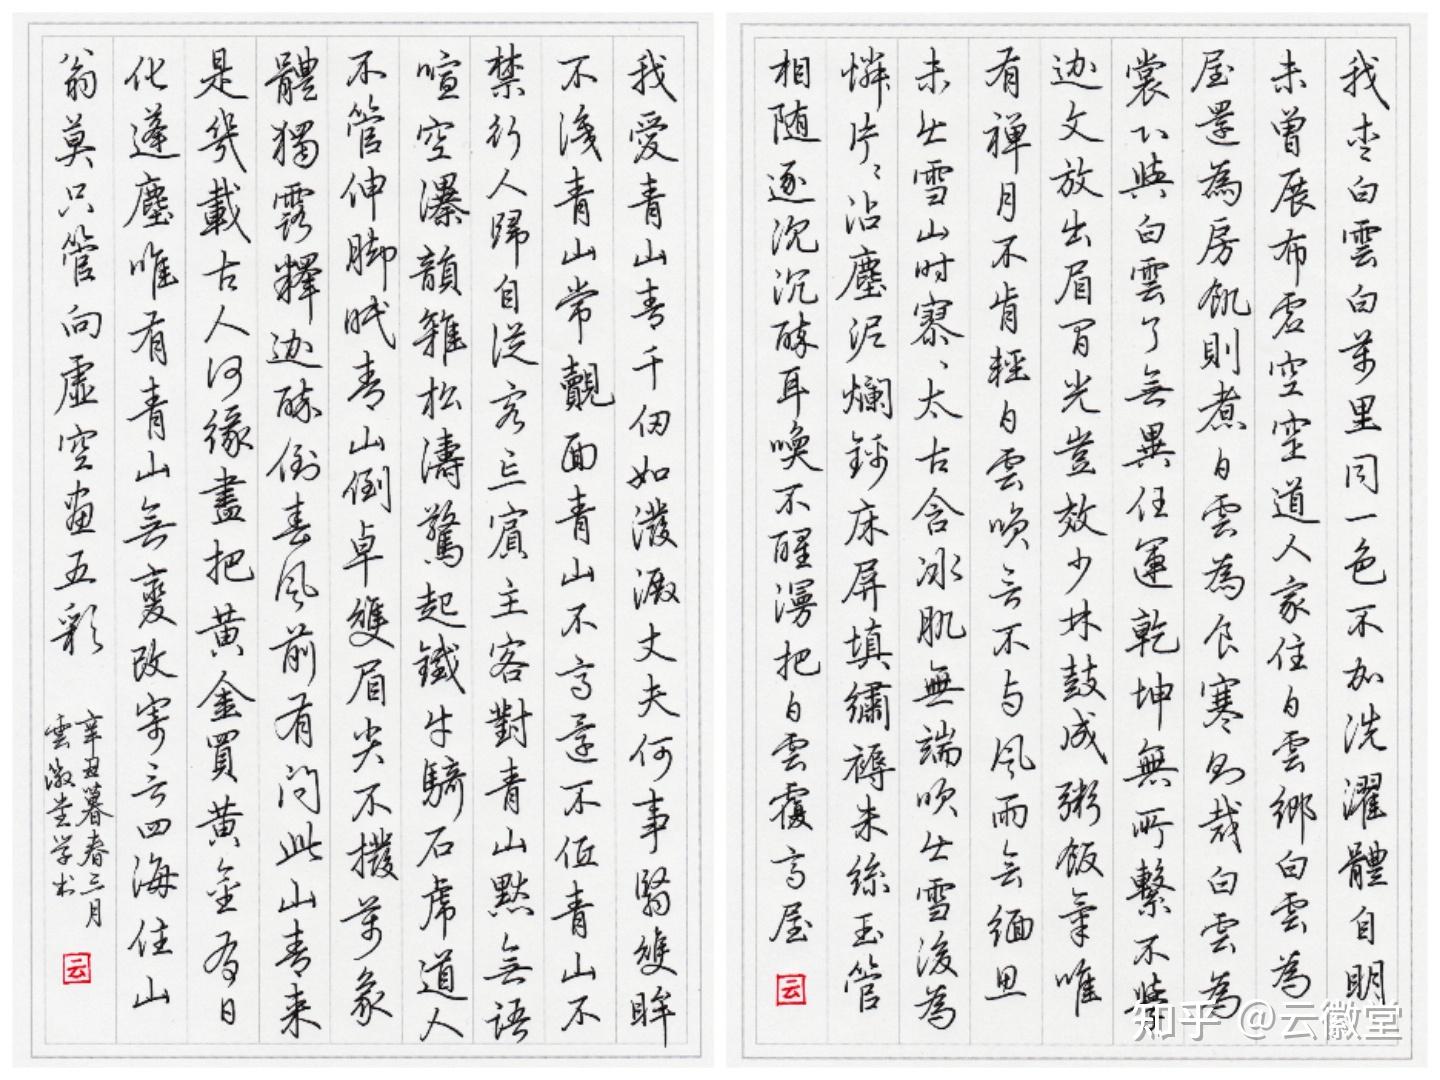 我爱白雲白萬里同一色不加洗濯體自明
未曾展布虛空空道人家住白雲鄉白雲為
屋還為房飢則煮白雲為食寒則裁白雲為
裳不與白雲了無異任運乾坤無所繫不學
迦文放出眉间光豈效少林鼓成粥飯氣唯
有禅月不肯輕白雲吹去不与風雨去缅思
未出雪山时寥寥太古含冰肌無端吹出雪後為
憐片片沾塵泥爛銀床屏填繡褥朱絲玉管
相随逐沉沉酥耳喚不醒漫把白雲覆高屋
云
我愛青山青千仞如潑澱丈夫何事翳雙眸
不淺青山常覿面青山不高還不低青山不
禁行人歸自從客亡賓主客對青山默無語
喧空瀑韻雜松濤驚起鐵牛騎石虎道人
不管伸脚眠青山倒卓雙眉尖不撥萬象
體獨露釋迦酥倒春風前有问此山青来
是幾載古人何緣盡把黄金買黄金有日
化蓬塵唯有青山無變改寄言四海住山
翁莫只管向虛空畫五彩
辛丑暮春三月
雲徽堂学书
云
知乎 @云徽堂